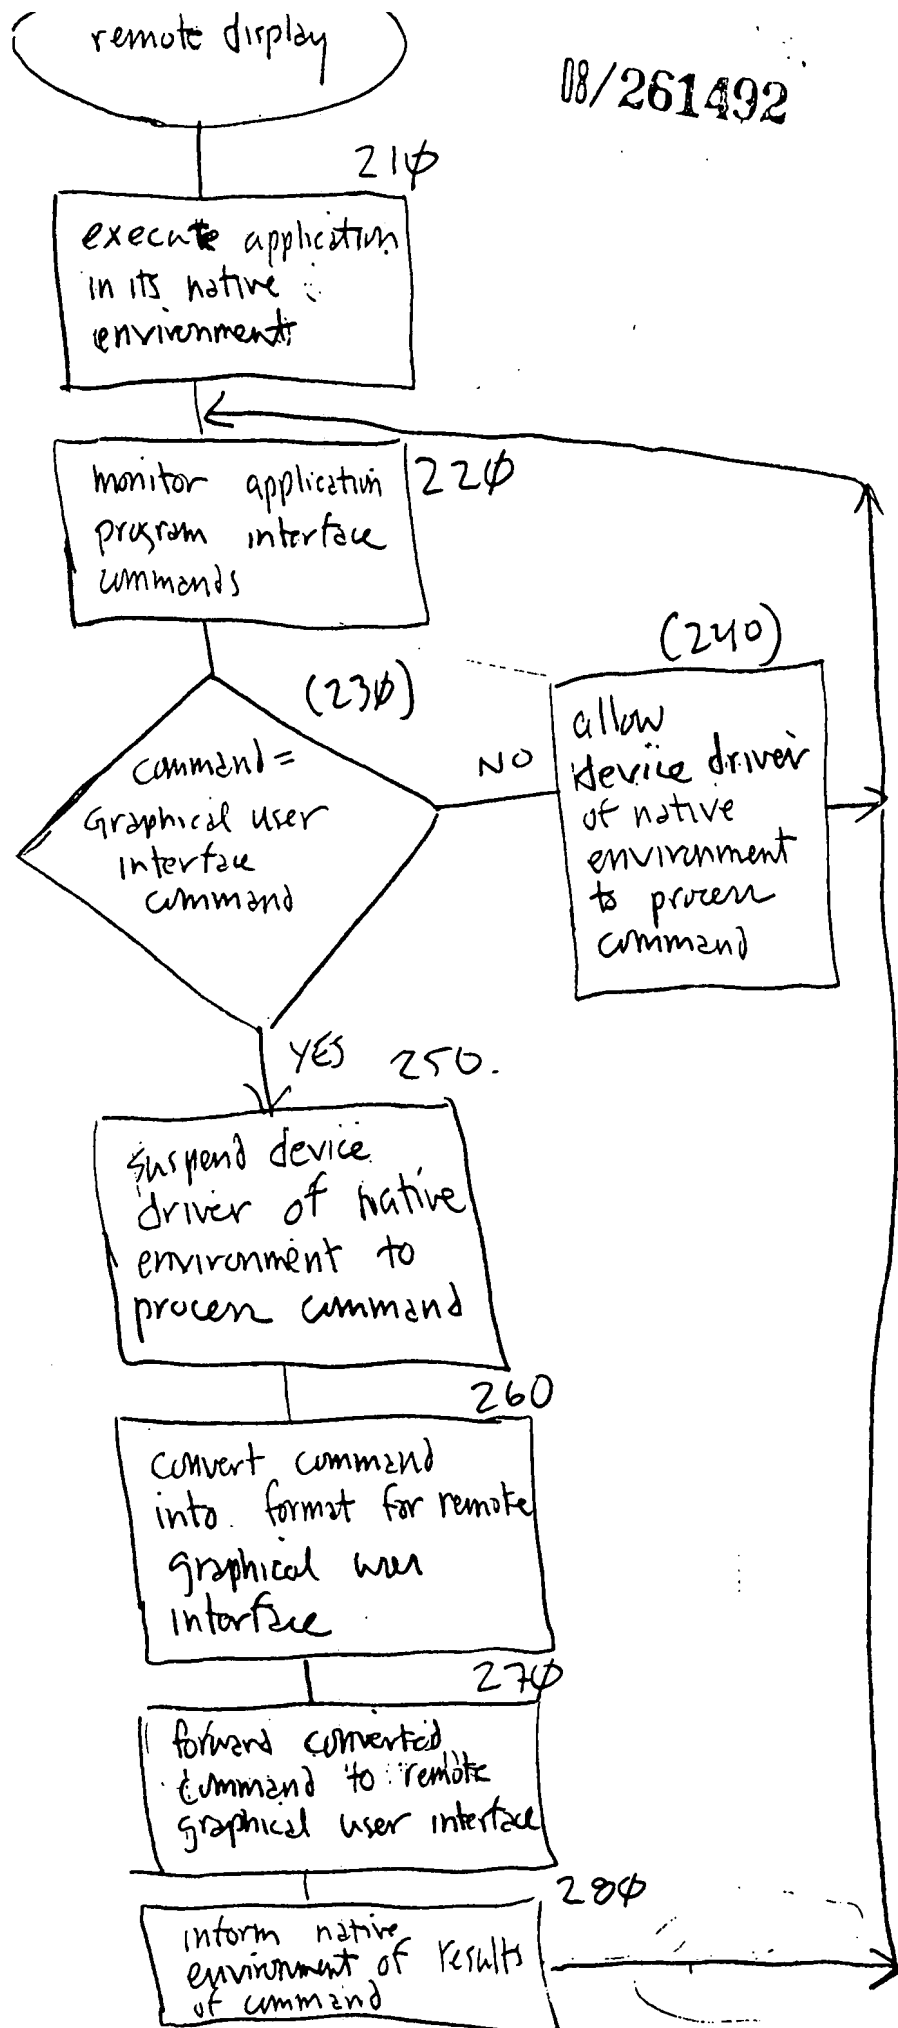 remote display
08/261492
210
execute application
in its native
environment
220
monitor application
program interface
commands
(230)
command =
Graphical user
interface
command
NO
(240)
allow
device driver
of native
environment
to process
command
YES
250.
suspend device
driver of native
environment to
process command
260
convert command
into format for remote
graphical user
interface
270
forward converted
command to remote
graphical user interface
280
inform native
environment of results
of command